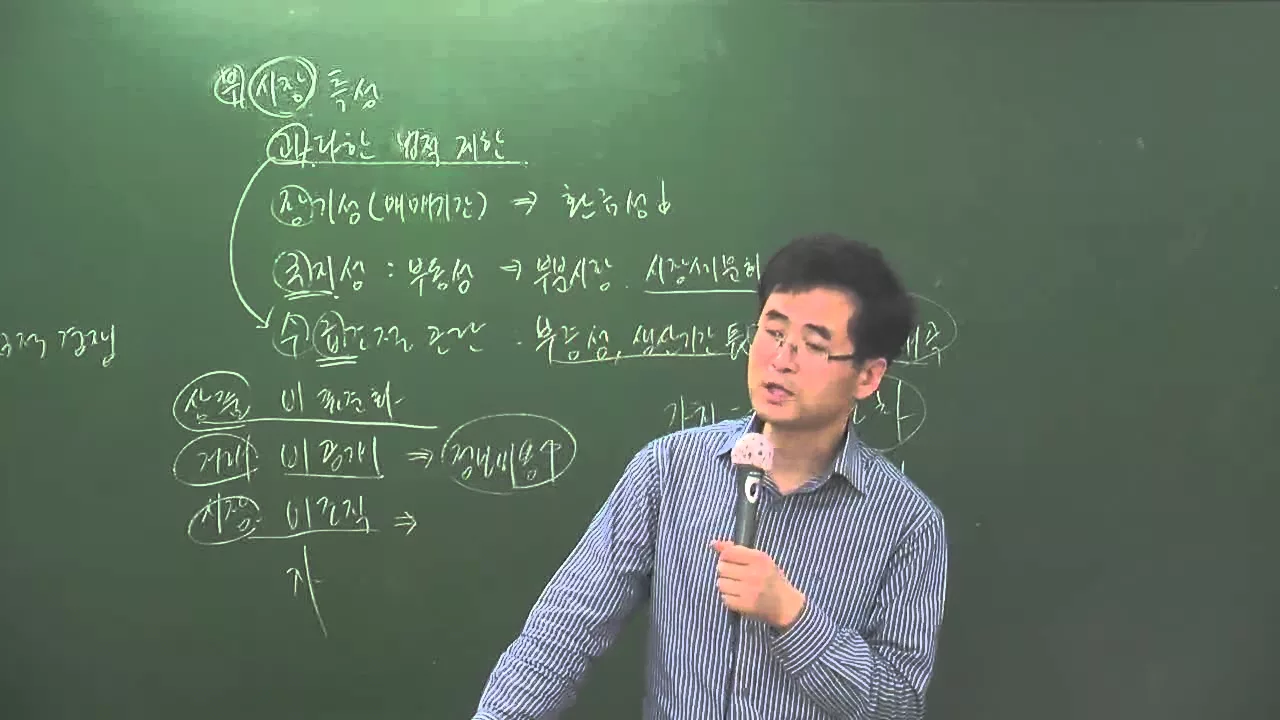 부 시장 특성
과다한 법적 제한
장기성(매매기간) ⇒ 환금성↓
국지성 : 부동성 ⇒ 부분시장. 시장세분화
수급조절 곤란 : 부증성, 생산기간 長
경쟁
상품 비표준화
거래 비공개 ⇒ 정보비용↑
시장 비조직 ⇒